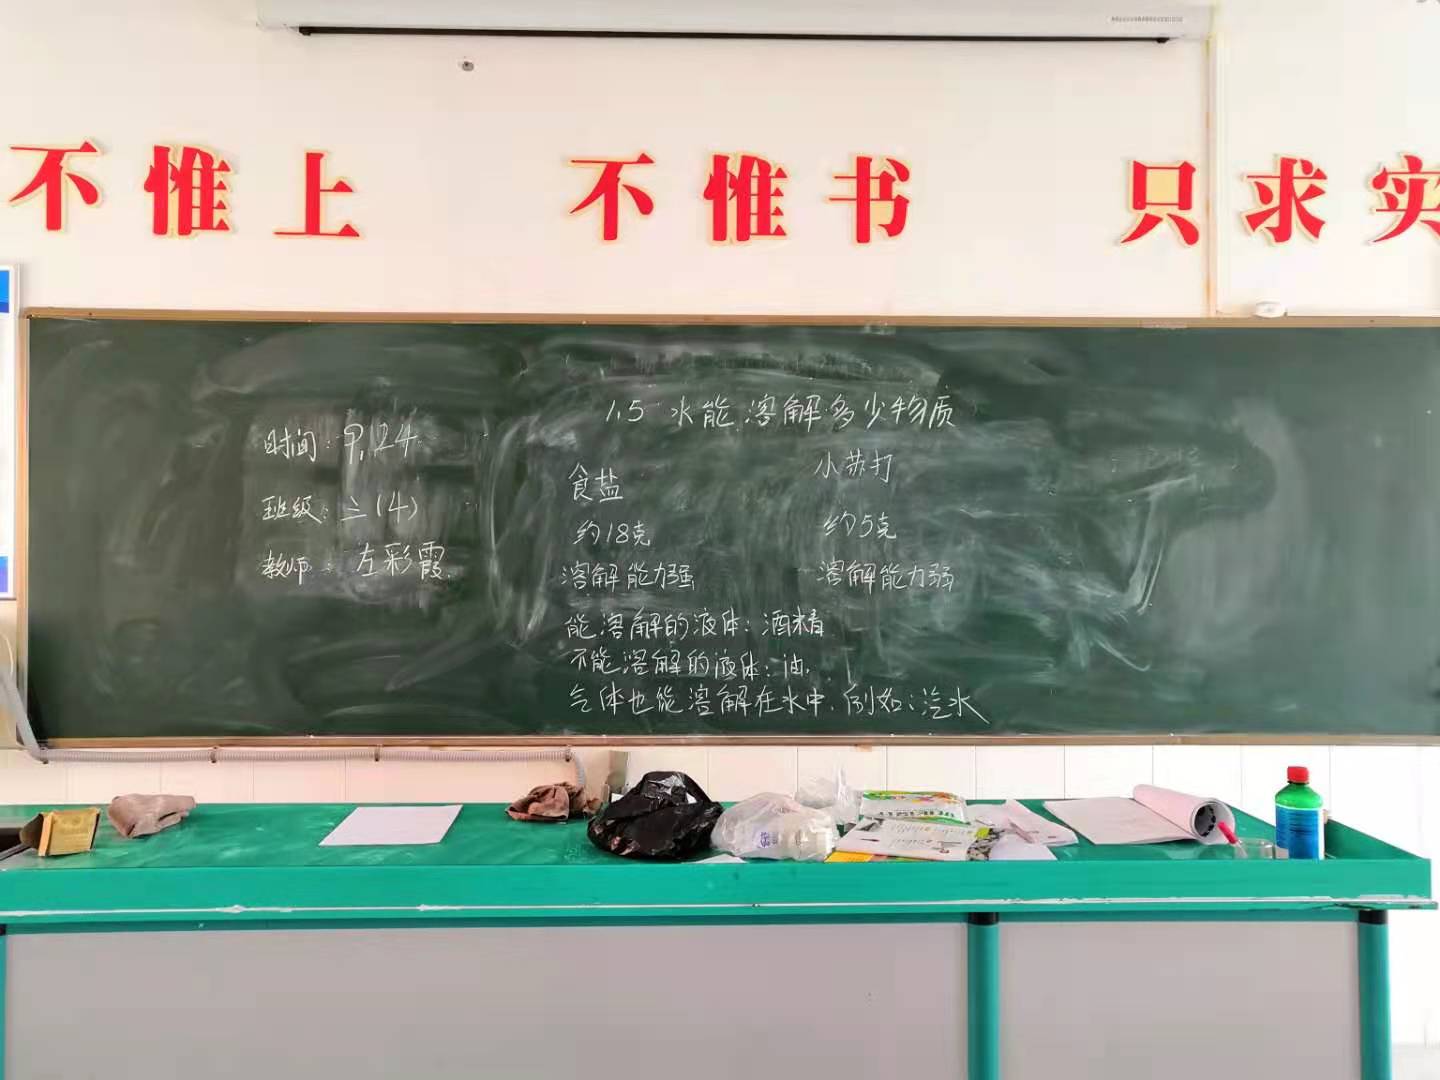 不惟上 不惟书 只求实
1.5 水能溶解多少物质
时间：9.24
班级：三(4)
教师：左彩霞
食盐 小苏打
约18克 约5克
溶解能力强 溶解能力弱
能溶解的液体：酒精
不能溶解的液体：油.
气体也能溶解在水中.例如：汽水